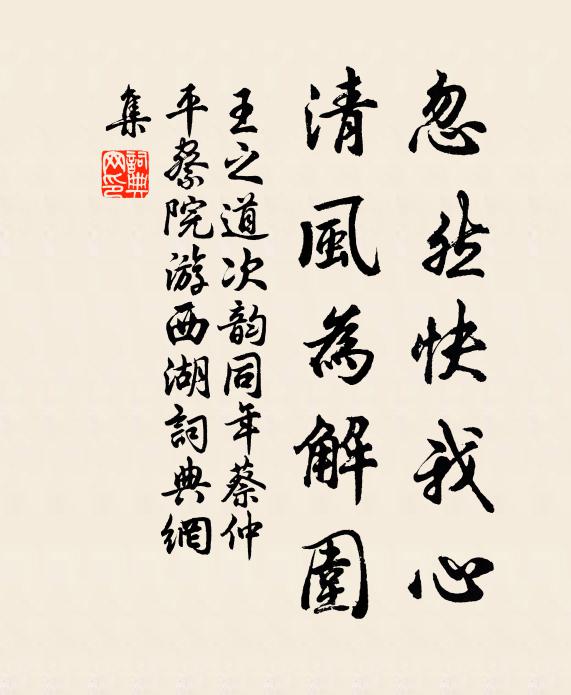 忽然快我心
清風為解圍
王之道次韵同年蔡仲
平察院游西湖詞典網
集
詞典網印